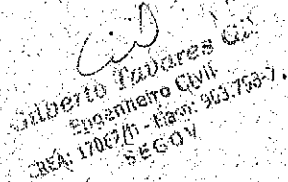 Gilberto Tavares Gil
Engenheiro Civil
CREA: 17067/D - Matr: 903.753-7.
SEGOV